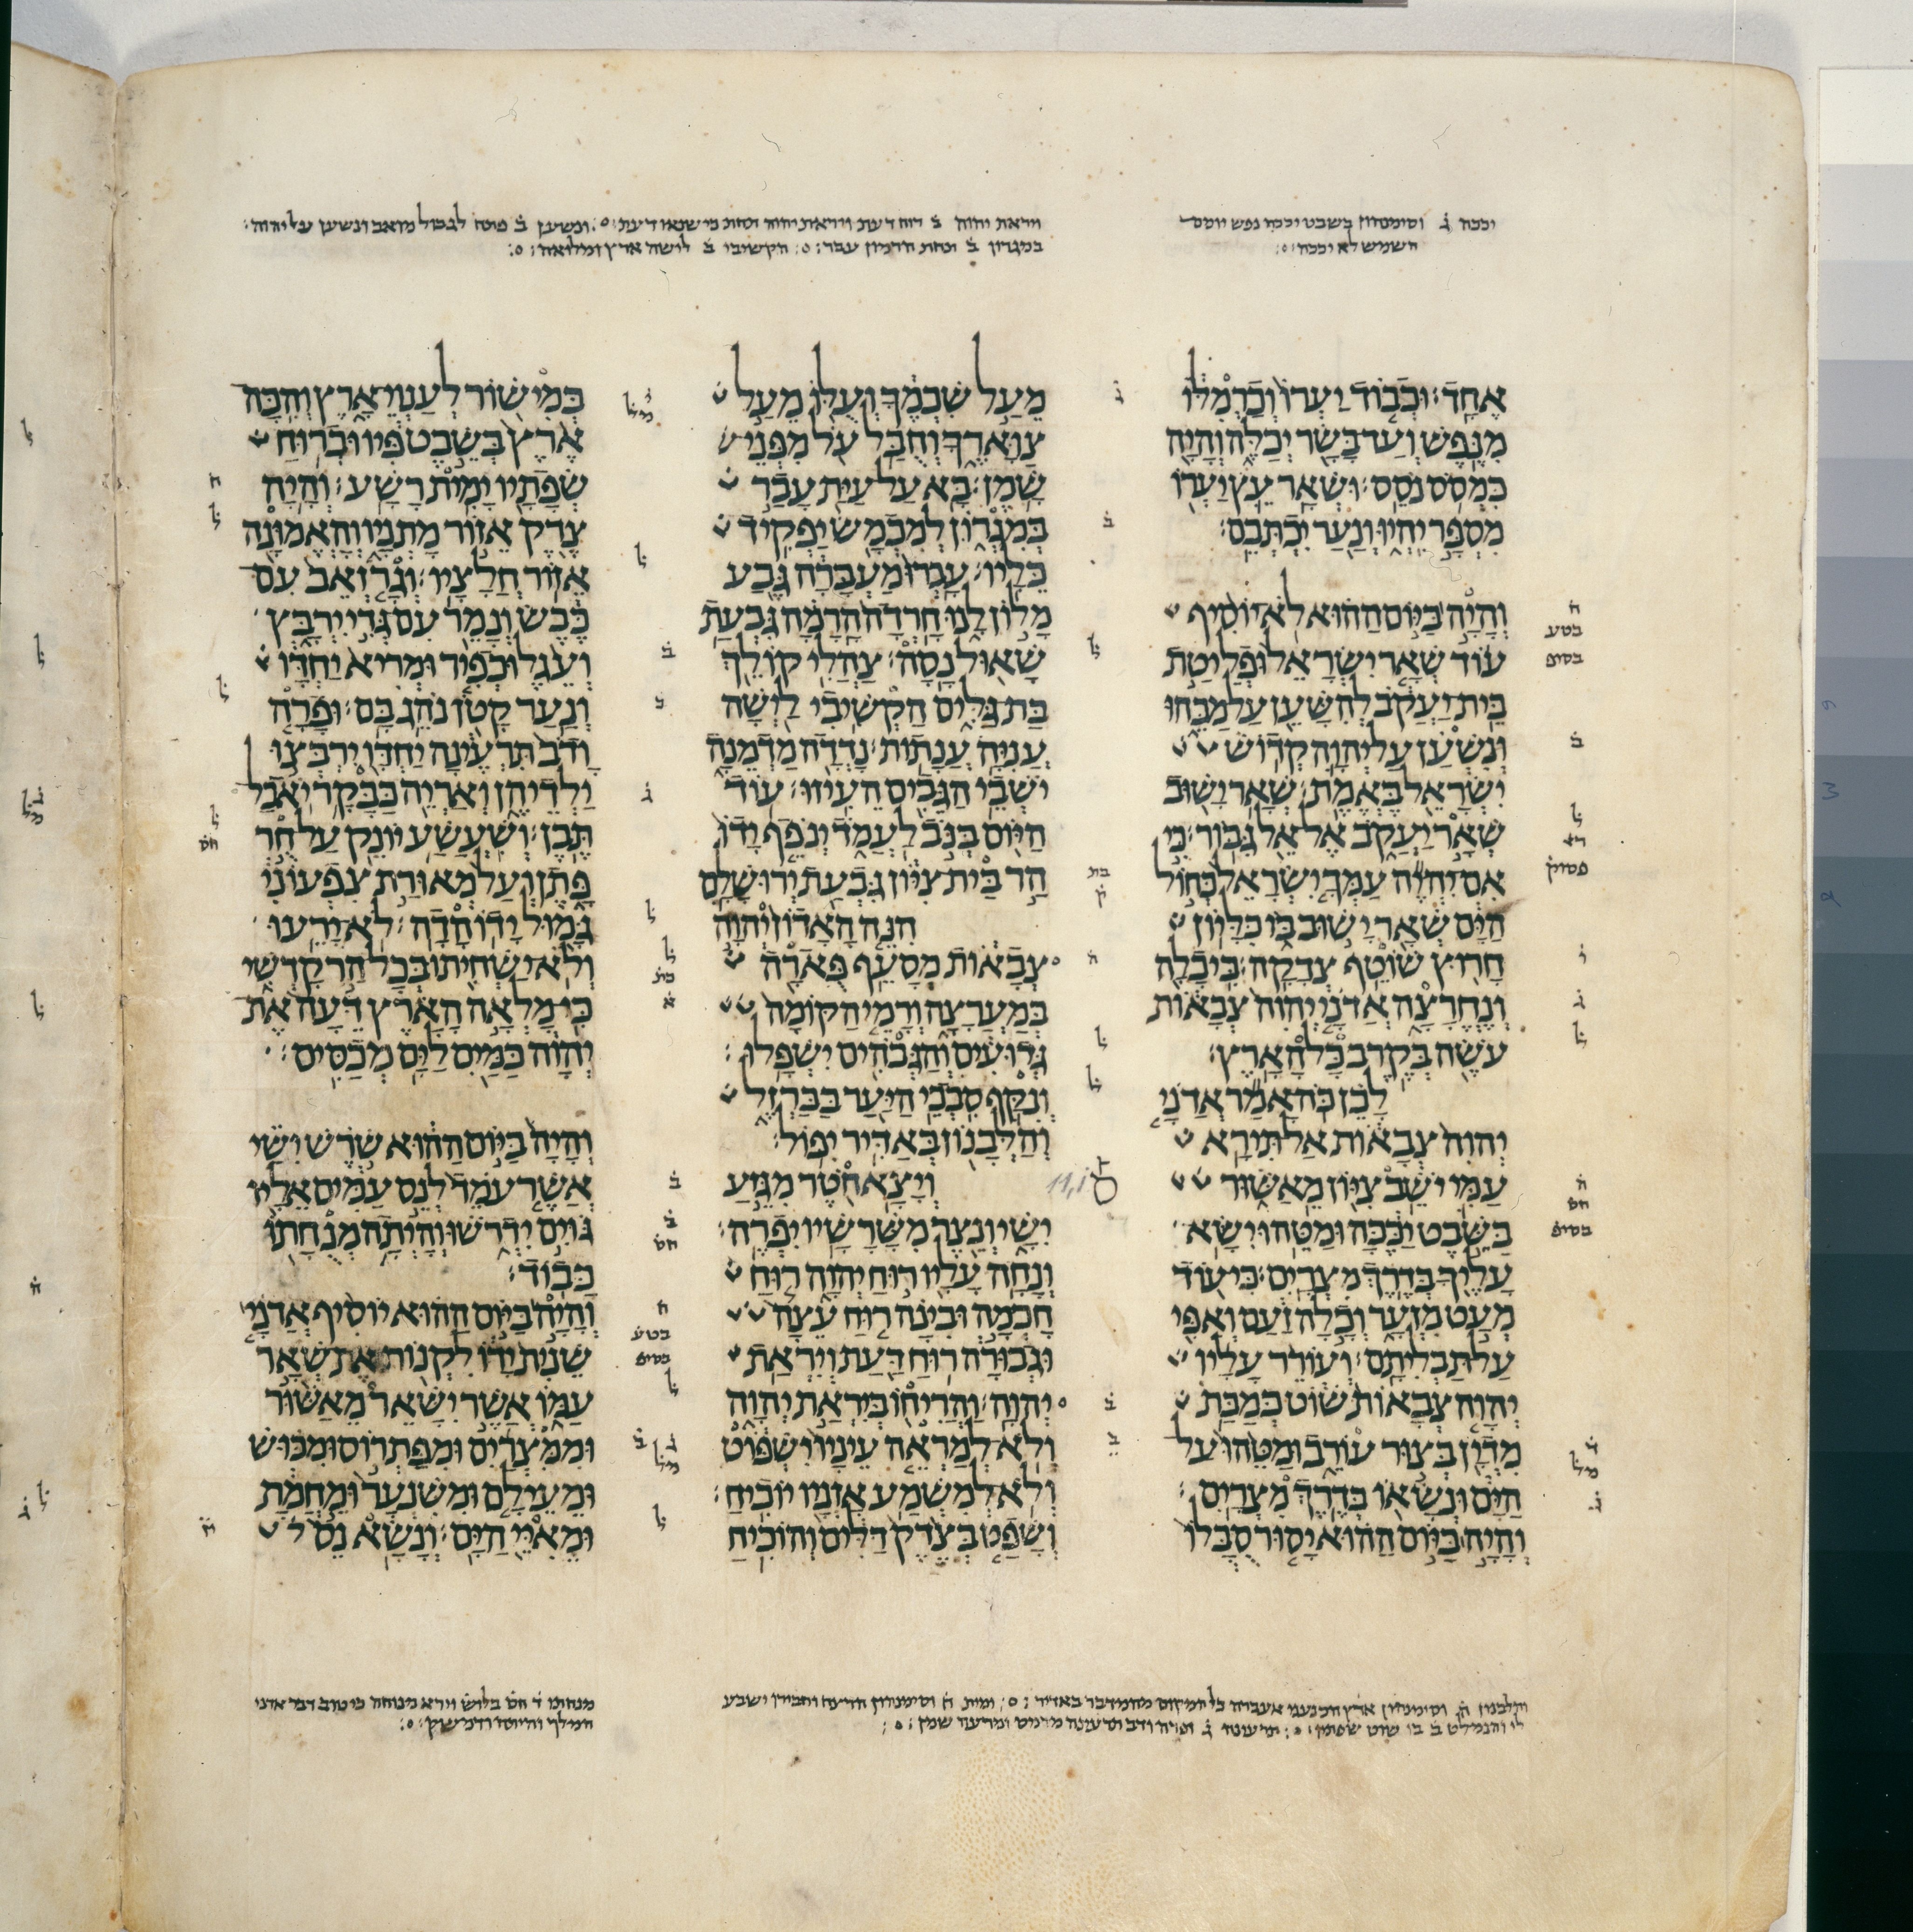 יככה ג וסימנהון בשבט יככה נפש יומם
השמש לא יככה׃
ויראת יהוה ב רוח דעת ויראת יהוה תחת כי שנאו דעת׃ ונשען ב פותח לגבול מואב ונשען על יהוה׃
במגרון ב תחת הרמון עבר׃ הקשיבי ב לישה ארץ ומלואה׃
אחד׃ וכבוד יערו וכרמלו
מנפש ועד בשר יכלה והיה
כמסס נסס׃ ושאר עץ יערו
מספר יהיו ונער יכתבם׃
והיה ביום ההוא לא יוסיף
עוד שאר ישראל ופליטת
בית יעקב להשען על מכהו
ונשען על יהוה קדוש
ישראל באמת׃ שאר ישוב
שאר יעקב אל אל גבור׃ כי
אם יהיה עמך ישראל כחול
הים שאר ישוב בו כליון
חרוץ שוטף צדקה׃ כי כלה
ונחרצה אדני יהוה צבאות
עשה בקרב כל הארץ׃
לכן כה אמר אדני
יהוה צבאות אל תירא
עמי ישב ציון מאשור
בשבט יככה ומטהו ישא
עליך בדרך מצרים׃ כי עוד
מעט מזער וכלה זעם ואפי
על תבליתם׃ ועורר עליו
יהוה צבאות שוט כמכת
מדין בצור עורב ומטהו על
הים ונשאו בדרך מצרים׃
והיה ביום ההוא יסור סבלו
מעל שכמך ועלו מעל
צוארך וחבל על מפני
שמן׃ בא על עית עבר
במגרון למכמש יפקיד
כליו׃ עברו מעברה גבע
מלון לנו חרדה הרמה גבעת
שאול נסה׃ צהלי קולך
בת גלים הקשיבי לישה
עניה ענתות׃ נדדה מדמנה
ישבי הגבים העיזו׃ עוד
היום בנב לעמד ינפף ידו
הר בית ציון גבעת ירושלם
הנה האדון יהוה
צבאות מסעף פארה
במערצה ורמי הקומה
גדועים והגבהים ישפלו׃
ונקף סבכי היער בברזל
והלבנון באדיר יפול׃
ויצא חטר מגזע
ישי ונצר משרשיו יפרה׃
ונחה עליו רוח יהוה רוח
חכמה ובינה רוח עצה
וגבורה רוח דעת ויראת
יהוה׃ והריחו ביראת יהוה
ולא למראה עיניו ישפוט
ולא למשמע אזניו יוכיח׃
ושפט בצדק דלים והוכיח
במישור לענוי ארץ והכה
ארץ בשבט פיו וברוח
שפתיו ימית רשע׃ והיה
צדק אזור מתניו והאמונה
אזור חלציו׃ וגר זאב עם
כבש ונמר עם גדי ירבץ
ועגל וכפיר ומריא יחדו
ונער קטן נהג בם׃ ופרה
ודב תרעינה יחדו ירבצו
ילדיהן ואריה כבקר יאכל
תבן׃ ושעשע יונק על חר
פתן ועל מאורת צפעוני
גמול ידו הדה׃ לא ירעו
ולא ישחיתו בכל הר קדשי
כי מלאה הארץ דעה את
יהוה כמים לים מכסים׃
והיה ביום ההוא שרש ישי
אשר עמד לנס עמים אליו
גוים ידרשו והיתה מנחתו
כבוד׃
והיה ביום ההוא יוסיף אדני
שנית ידו לקנות את שאר
עמו אשר ישאר מאשור
וממצרים ומפתרוס ומכוש
ומעילם ומשנער ומחמת
ומאיי הים׃ ונשא נס ל
11,1
והלבנון ה וסימנהון ארץ הכנעני אעברה כל המקום מהמדבר באדיר׃
תרעינה ג ופרה ודב תרעינה
מנחתו ד חס בליש וירא מנוחה כי טוב דבר אדני
המלך